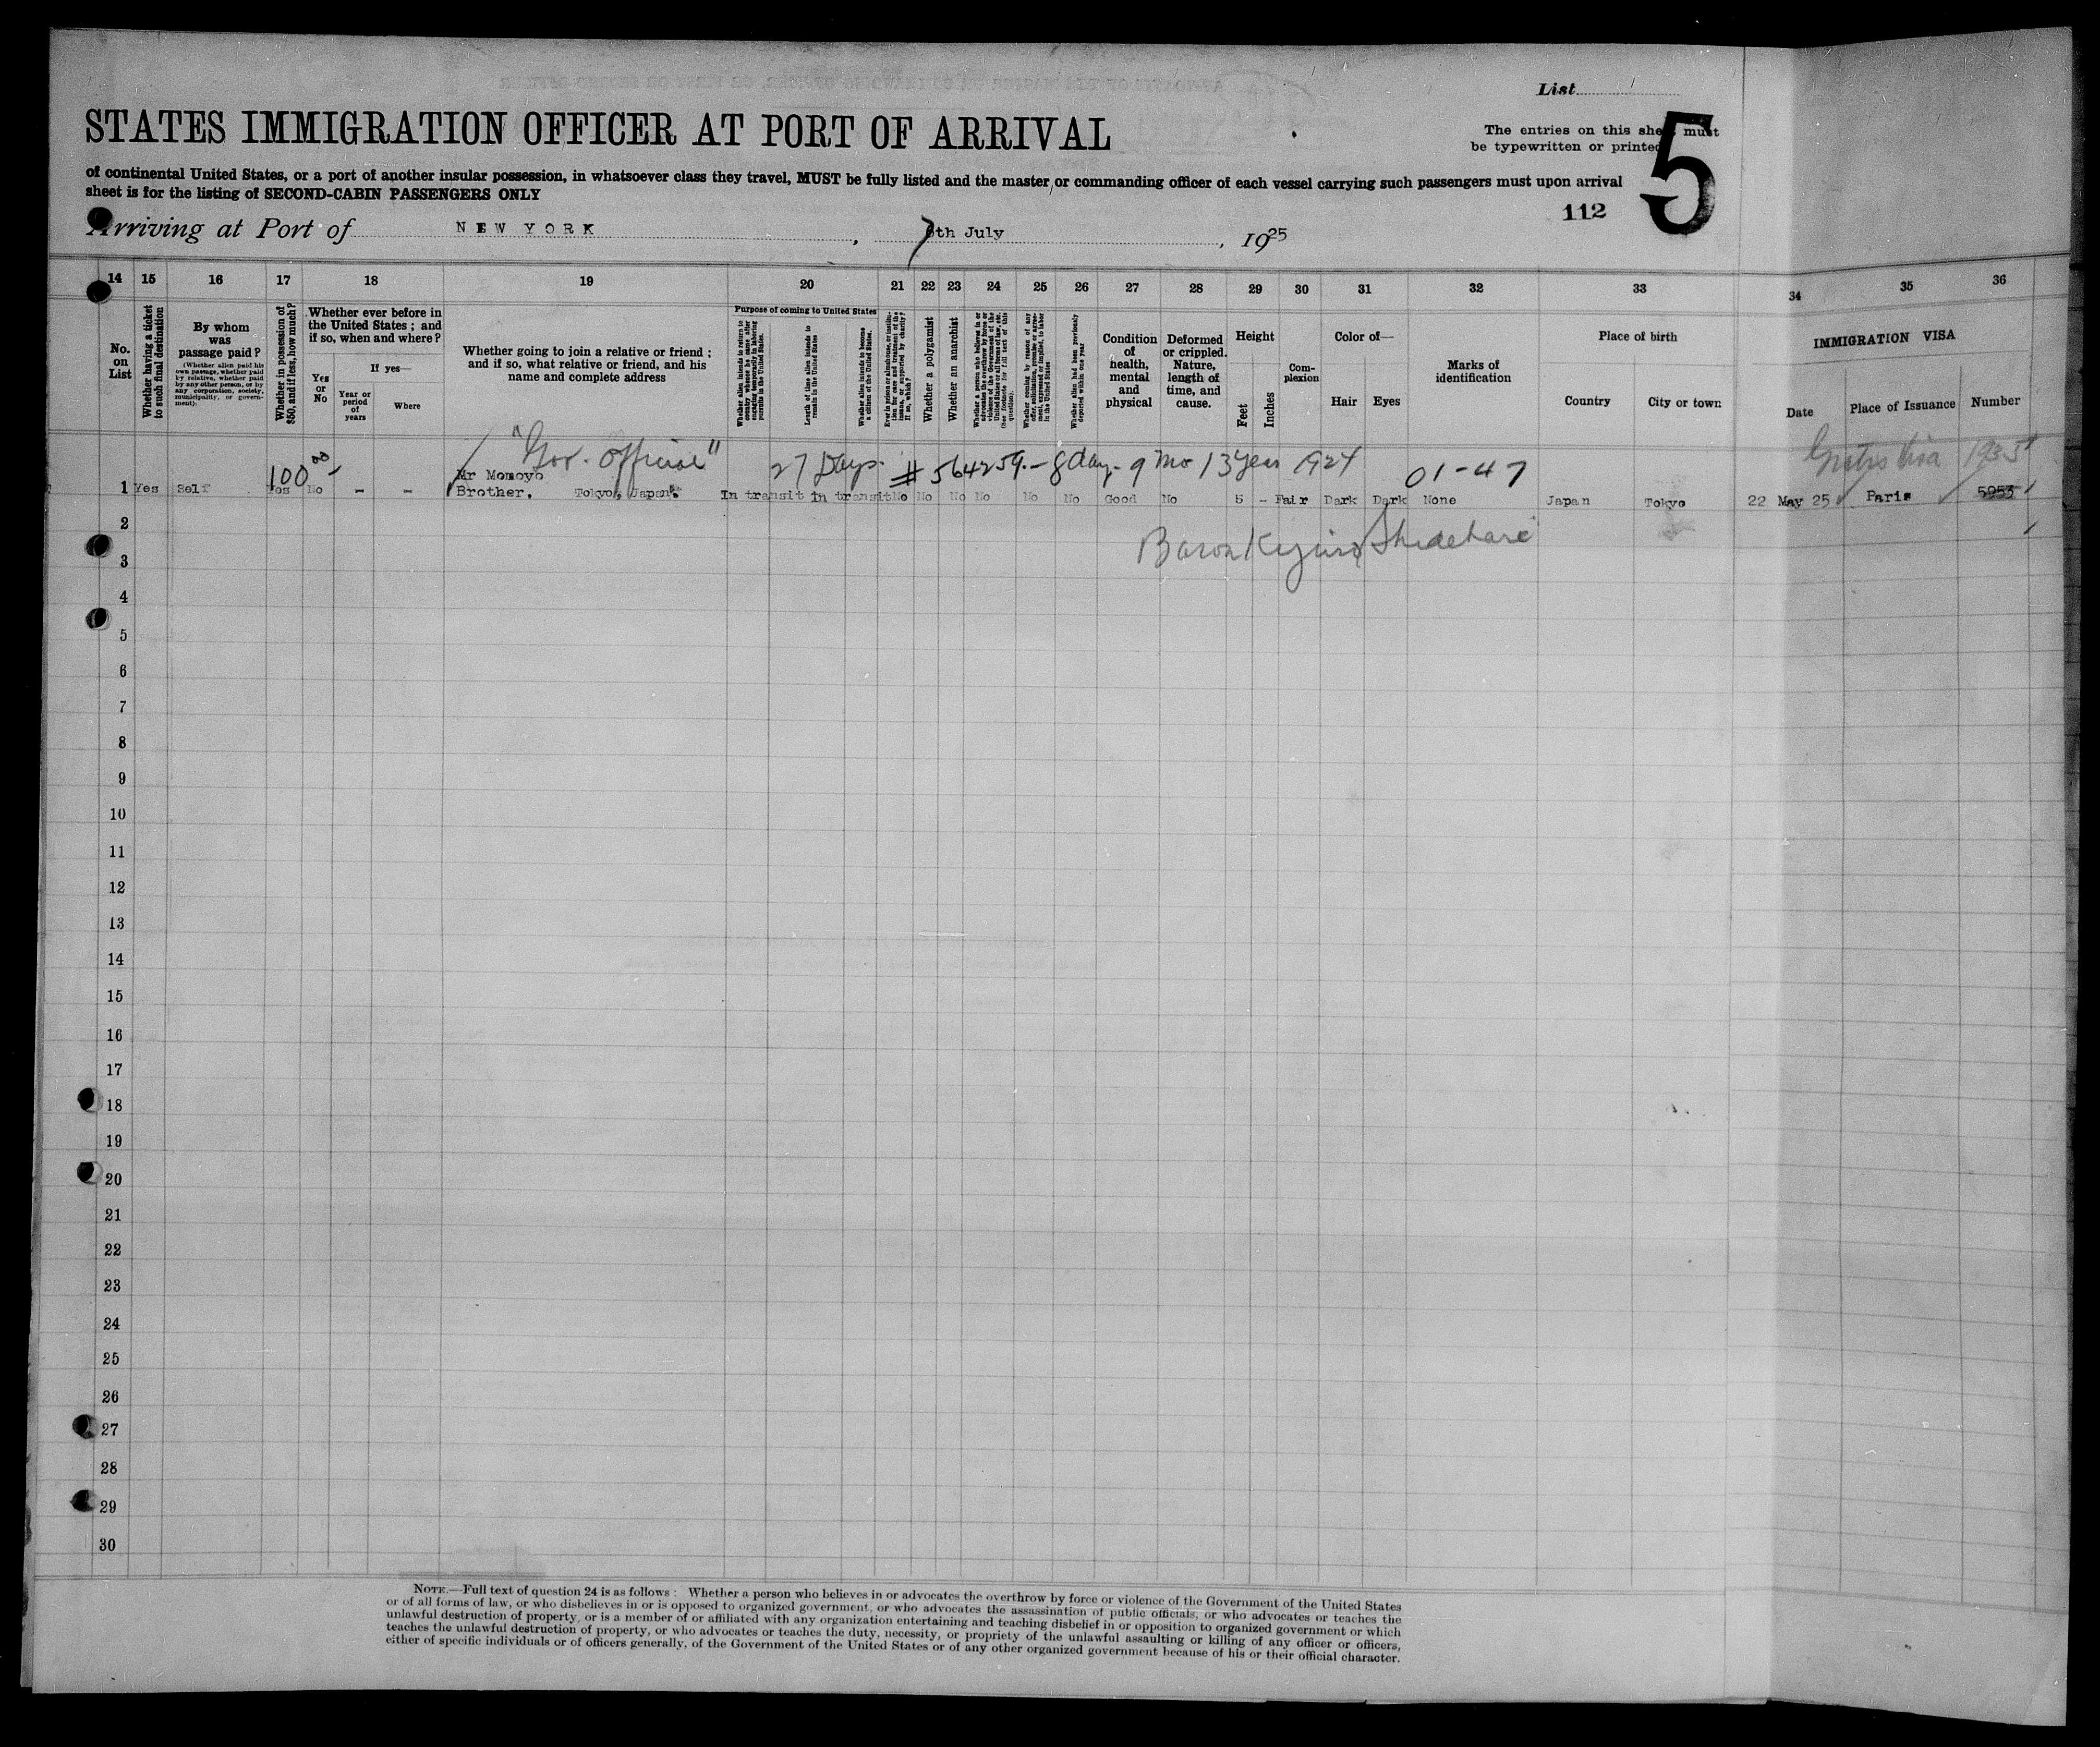 List
5
STATES IMMIGRATION OFFICER AT PORT OF ARRIVAL
The entries on this sheet must
be typewritten or printed
of continental United States, or a port of another insular possession, in whatsoever class they travel, MUST be fully listed and the master or commanding officer of each vessel carrying such passengers must upon arrival
sheet is for the listing of SECOND-CABIN PASSENGERS ONLY
112
Arriving at Port of NEW YORK, 7th July, 1925
14 15 16 17 18 19 20 21 22 23 24 25 26 27 28 29 30 31 32 33 34 35 36
No. on List
Whether having a ticket to such final destination
By whom was passage paid?
(Whether alien paid his own passage, whether paid by relative, whether paid by any other person, or by any corporation, society, municipality, or government).
Whether in possession of $50, and if less, how much?
Whether ever before in the United States; and if so, when and where?
Yes or No
If yes—
Year or period of years
Where
Whether going to join a relative or friend; and if so, what relative or friend, and his name and complete address
Purpose of coming to United States
Whether alien intends to return to country whence he came after engaging temporarily in laboring pursuits in the United States.
Length of time alien intends to remain in the United States
Whether alien intends to become a citizen of the United States.
Whether a polygamist
Whether an anarchist
Whether alien had been previously deported within one year
Condition of health, mental and physical
Deformed or crippled. Nature, length of time, and cause.
Height
Feet
Inches
Complexion
Color of—
Hair
Eyes
Marks of identification
Place of birth
Country
City or town
IMMIGRATION VISA
Date
Place of Issuance
Number
"Gov. Official" 27 Days. # 564259.- 8 day- 9 Mo 13 Year 1924 01-47 Visa 1935
100 00
Mr Momoyo
1 Yes Self Yes No - - Brother, Tokyo, Japan. In transit In transit No No No No No No Good No 5 - Fair Dark Dark None Japan Tokyo 22 May 25 Paris 5953
2
Baron Kijuro Shidehara
3
4
5
6
7
8
9
10
11
12
13
14
15
16
17
18
19
20
21
22
23
24
25
26
27
28
29
30
NOTE.—Full text of question 24 is as follows: Whether a person who believes in or advocates the overthrow by force or violence of the Government of the United States
or of all forms of law, or who disbelieves in or is opposed to organized government, or who advocates the assassination of public officials, or who advocates or teaches the
unlawful destruction of property, or is a member of or affiliated with any organization entertaining and teaching disbelief in or opposition to organized government or which
teaches the unlawful destruction of property, or who advocates or teaches the duty, necessity, or propriety of the unlawful assaulting or killing of any officer or officers,
either of specific individuals or of officers generally, of the Government of the United States or of any other organized government because of his or their official character.